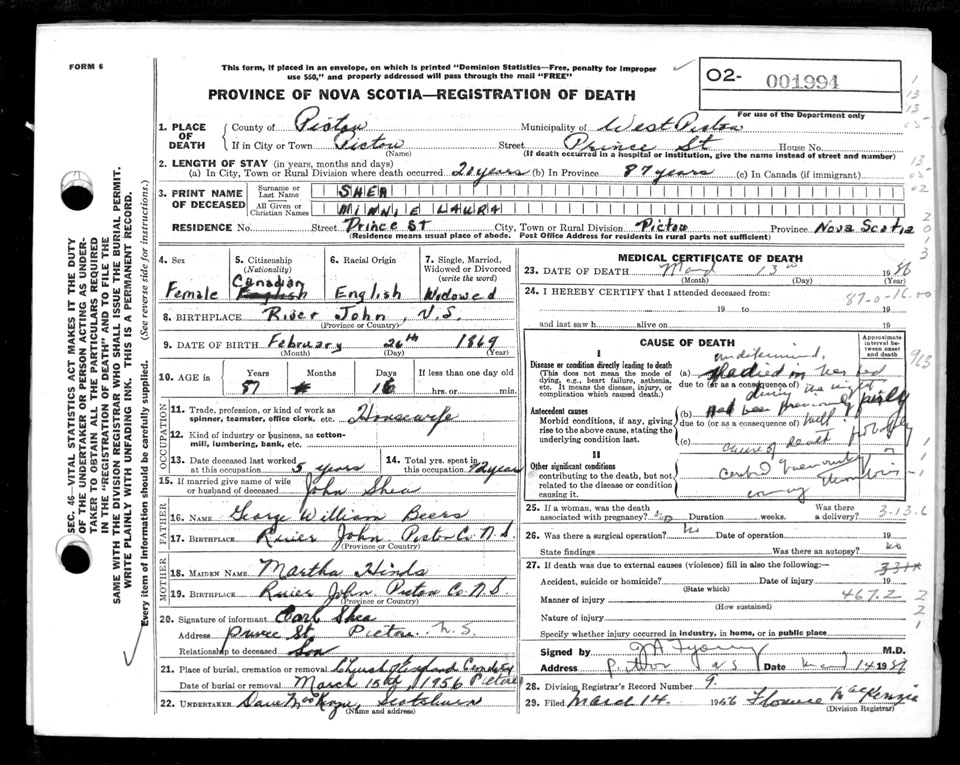 FORM 6
This form, if placed in an envelope, on which is printed "Dominion Statistics—Free, penalty for improper
use $50," and properly addressed will pass through the mail "FREE"
O2- 001994
For use of the Department only
PROVINCE OF NOVA SCOTIA—REGISTRATION OF DEATH
SEC. 46—VITAL STATISTICS ACT MAKES IT THE DUTY
OF THE UNDERTAKER OR PERSON ACTING AS UNDER-
TAKER TO OBTAIN ALL THE PARTICULARS REQUIRED
IN THE "REGISTRATION OF DEATH" AND TO FILE THE
SAME WITH THE DIVISION REGISTRAR WHO SHALL ISSUE THE BURIAL PERMIT.
WRITE PLAINLY WITH UNFADING INK. THIS IS A PERMANENT RECORD.
Every item of information should be carefully supplied. (See reverse side for instructions.)
1. PLACE OF DEATH County of Pictou Municipality of West Pictou
If in City or Town Pictou Street Prince St House No.
(Name) (If death occurred in a hospital or institution, give the name instead of street and number)
2. LENGTH OF STAY (in years, months and days)
(a) In City, Town or Rural Division where death occurred 20 years (b) In Province 87 years (c) In Canada (if immigrant)
3. PRINT NAME OF DECEASED Surname or Last Name SHEA
All Given or Christian Names MINNIE LAURA
RESIDENCE No. Street Prince ST City, Town or Rural Division Pictou Province Nova Scotia
(Residence means usual place of abode. Post Office Address for residents in rural parts not sufficient)
4. Sex Female
5. Citizenship (Nationality) Canadian English
6. Racial Origin English
7. Single, Married, Widowed or Divorced (write the word) Widowed
8. BIRTHPLACE River John, N.S.
(Province or Country)
9. DATE OF BIRTH February 26th 1869
(Month) (Day) (Year)
10. AGE in Years Months Days If less than one day old
87 16 hrs. or min.
OCCUPATION
11. Trade, profession, or kind of work as spinner, teamster, office clerk, etc. Housewife
12. Kind of industry or business, as cotton-mill, lumbering, bank, etc.
13. Date deceased last worked at this occupation 5 years
14. Total yrs. spent in this occupation
15. If married give name of wife or husband of deceased John Shea
FATHER
16. NAME George William Beers
17. BIRTHPLACE River John Pictou Co. N.S.
(Province or Country)
MOTHER
18. MAIDEN NAME Martha Hinds
19. BIRTHPLACE River John Pictou Co N.S.
(Province or Country)
20. Signature of informant Earl Shea
Address Prince St. Pictou N.S.
Relationship to deceased Son
21. Place of burial, cremation or removal Church of England Cemetery
Date of burial or removal March 15th, 1956 Pictou
22. UNDERTAKER
(Name and address)
MEDICAL CERTIFICATE OF DEATH
23. DATE OF DEATH March 13th 1956
(Month) (Day) (Year)
24. I HEREBY CERTIFY that I attended deceased from:
87-0-16.00
19 to 19
and last saw h alive on 19
CAUSE OF DEATH Approximate interval between onset and death
I
Disease or condition directly leading to death
(This does not mean the mode of dying, e.g., heart failure, asthenia, etc. It means the disease, injury, or complication which caused death.)
(a) in her bed
due to (or as a consequence of)
during the night
Antecedent causes
Morbid conditions, if any, giving rise to the above cause, stating the underlying condition last.
(b) Had been previously fairly
due to (or as a consequence of)
(c)
cause of death probably
II
Other significant conditions
contributing to the death, but not related to the disease or condition causing it.
25. If a woman, was the death associated with pregnancy? no Duration weeks. Was there a delivery?
3-13.6
26. Was there a surgical operation? No Date of operation 19
State findings Was there an autopsy? no
27. If death was due to external causes (violence) fill in also the following:—
Accident, suicide or homicide? Date of injury 19
(State which)
Manner of injury 467.2
(How sustained)
Nature of injury
Specify whether injury occurred in industry, in home, or in public place
Signed by M.D.
Address Pictou N S Date March 14 1956
28. Division Registrar's Record Number 9.
29. Filed March 14. 1956 Florence MacKenzie
(Division Registrar)